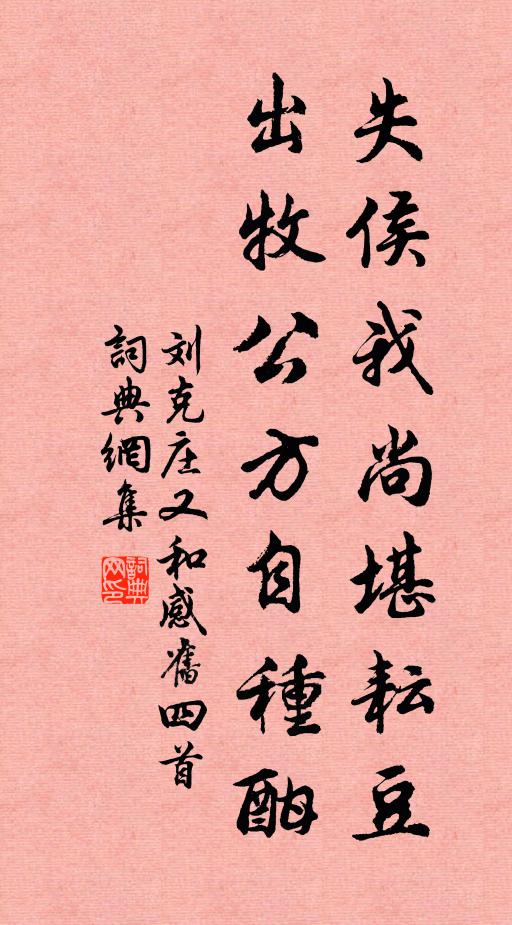 失侯我尚堪耘豆
出牧公方自種酣
刘克庄又和感舊四首
詞典網集
詞典網印